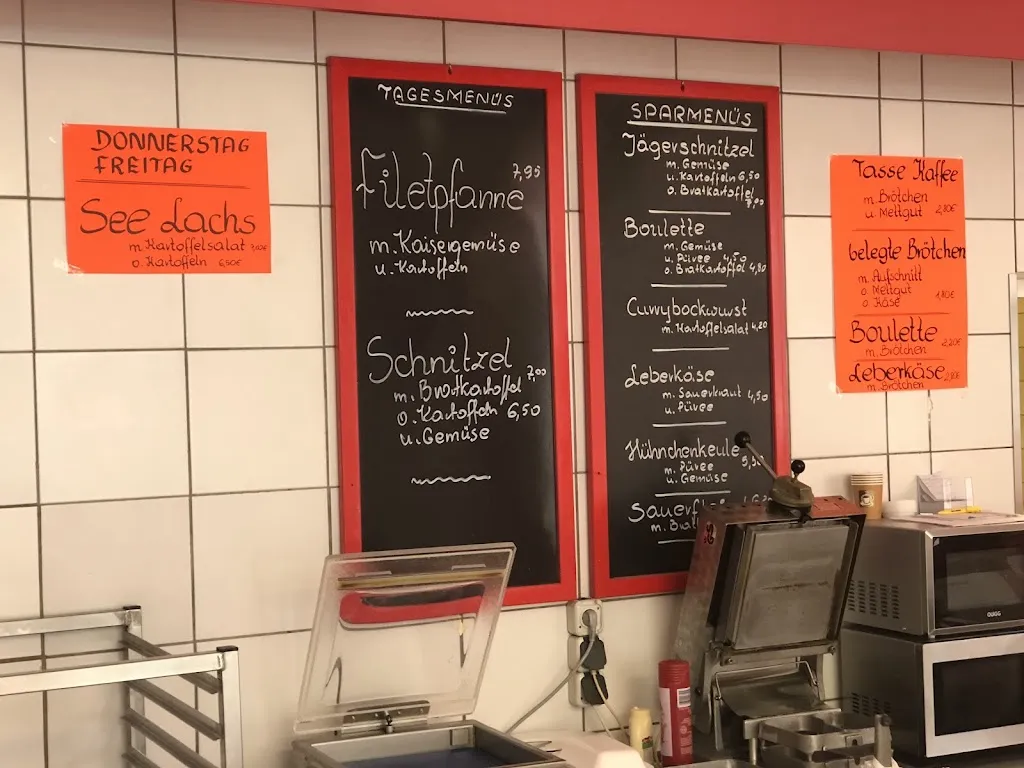 DONNERSTAG
FREITAG
See Lachs
m. Kartoffelsalat
o. Kartoffeln 6,50€
TAGESMENÜS
Filetpfanne 7,95
m. Kaisergemüse
u. Kartoffeln
Schnitzel
m. Bratkartoffel 7,00
o. Kartoffeln 6,50
u. Gemüse
SPARMENÜS
Jägerschnitzel
m. Gemüse
u. Kartoffeln 6,50
o. Bratkartoffel
7,00
Boulette
m. Gemüse
u. Püree 4,50
o. Bratkartoffel 4,90
Currybockwurst
m. Kartoffelsalat 4,20
Leberkäse
m. Sauerkraut 4,50
u. Püree
Hühnchenkeule 5,50
m. Püree
u. Gemüse
m.
Tasse Kaffee
m. Brötchen
u. Mettgut 2,80€
belegte Brötchen
m. Aufschnitt
o. Mettgut
o. Käse 1,80€
Boulette 2,20€
m. Brötchen
Leberkäse
m. Brötchen
QUIGG